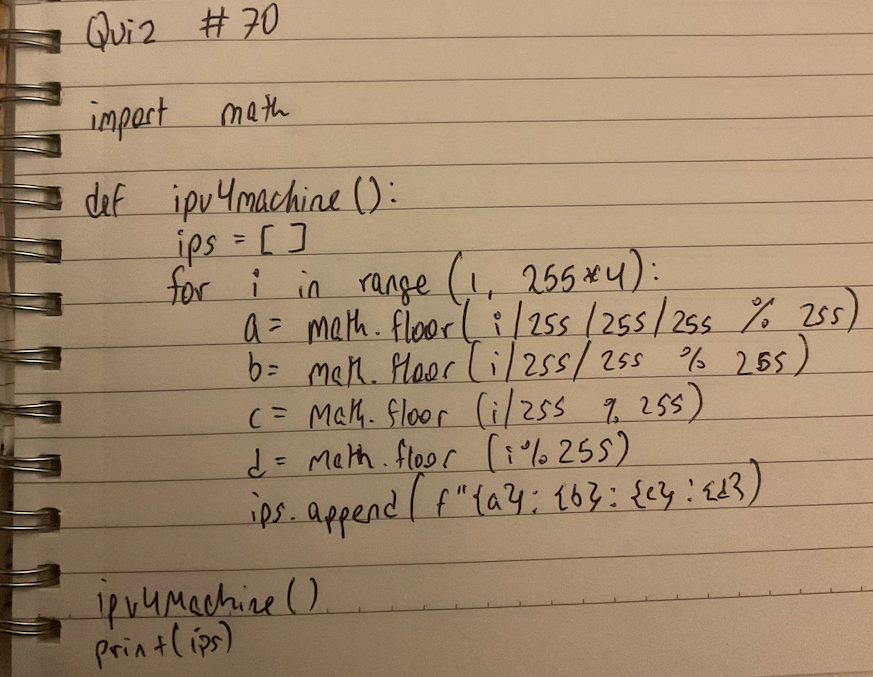 Quiz #70
import math
def ipv4machine():
ips = []
for i in range (1, 255*4):
a = math.floor( i/255/255/255 % 255)
b = math.floor(i/255/255 % 255)
c = math.floor (i/255 % 255)
d = math.floor (i%255)
ips.append( f"{a}:{b}:{c}:{d})
ipv4machine()
print(ips)